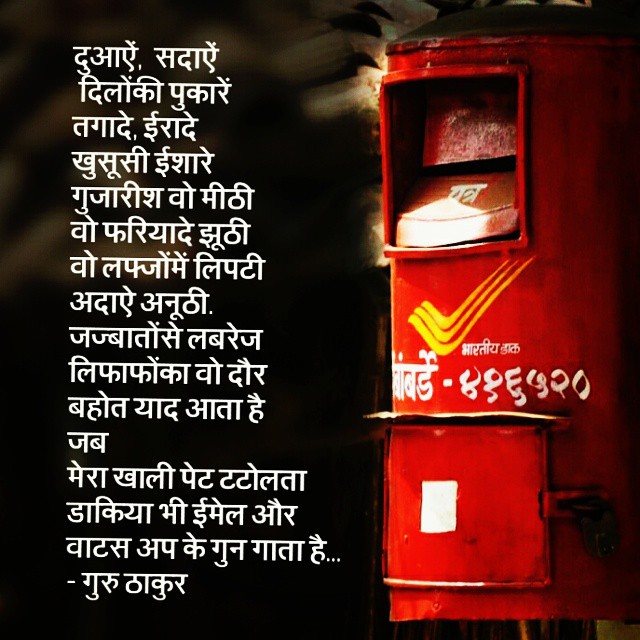 दुआऐं, सदाऐं
दिलोंकी पुकारें
तगादे, ईरादे
खुसूसी ईशारे
गुजारीश वो मीठी
वो फरियादे झूठी
वो लफ्जोंमें लिपटी
अदाऐ अनूठी.
जज्बातोंसे लबरेज
लिफाफोंका वो दौर
बहोत याद आता है
जब
मेरा खाली पेट टटोलता
डाकिया भी ईमेल और
वाटस अप के गुन गाता है...
- गुरु ठाकुर
पत्र
भारतीय डाक
- ४१६५२०